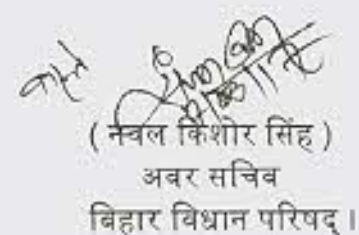 वास्ते
( नवल किशोर सिंह )
अवर सचिव
बिहार विधान परिषद् ।